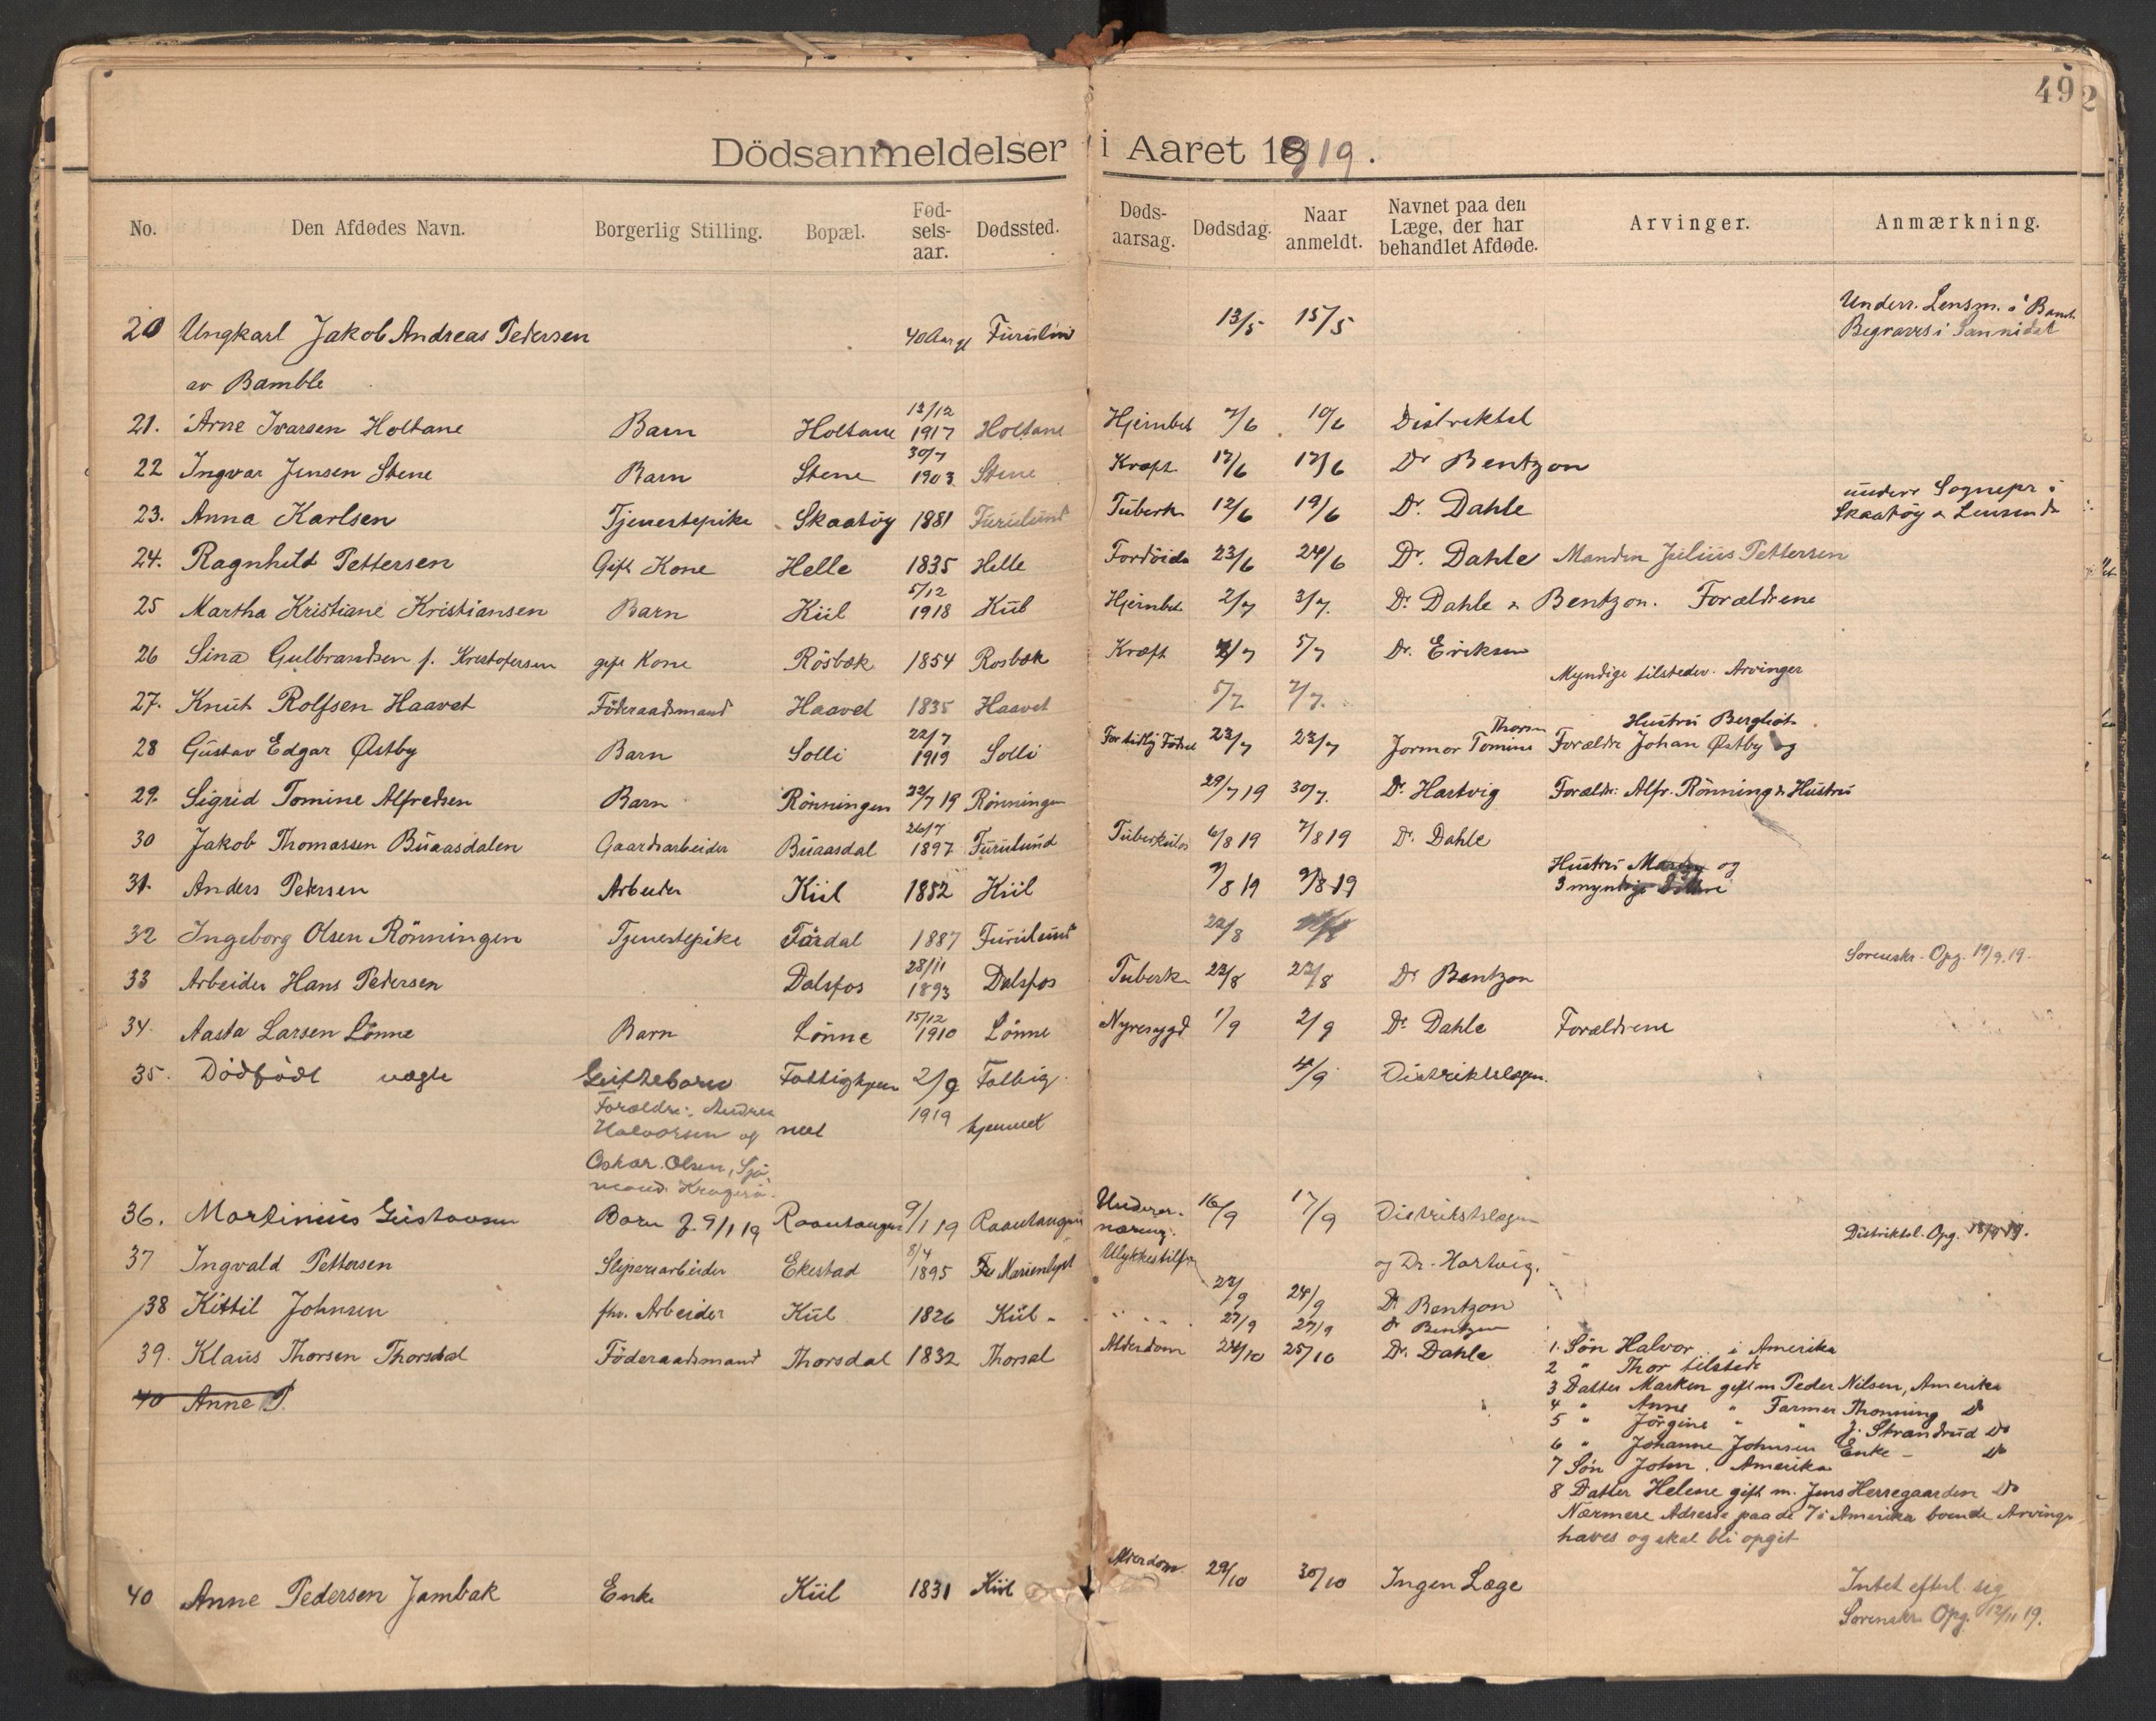 49
2
Dödsanmeldelser i Aaret 1919.
No. Den Afdødes Navn. Borgerlig Stilling. Bopæl. Fød-sels-aar. Dødssted. Døds-aarsag. Dødsdag. Naar anmeldt. Navnet paa den Læge, der har behandlet Afdøde. Arvinger. Anmærkning.
20 Ungkarl Jakob Andreas Pedersen 40 Aar gl Furulund 13/5 15/5 Underr. Lensm. i Bamb.
av Bamble Begraves i Sannidal
21. Arne Ivarsen Holtane Barn Holtane 13/12 1917 Holtane Hjernbet 7/6 10/6 Distriktsl
22 Ingvar Jensen Stene Barn Stene 30/7 1903 Stene Kræft 17/6 17/6 Dr Bentzon
23. Anna Karlsen Tjenestepike Skaatöy 1881 Furulund Tuberk 12/6 19/6 Dr. Dahle underr Sognepr i
Skaatöy & Lensm
24. Ragnhild Pettersen Gift Kone Helle 1835 Helle 23/6 24/6 Dr. Dahle Manden Julius Pettersen
25 Martha Kristiane Kristiansen Barn Kiil 5/12 1918 Kiil Hjernbet 2/7 3/7. Dr. Dahle & Bentzon. Forældrene
26 Sina Gulbrandsen f. Kristofersen gift Kone Rösbæk 1854 Rosbæk Kræft 2/7 5/7 Dr. Eriksen
27. Knut Rolfsen Haavet Föderaadsmand Haavet 1835 Haavet 5/7 7/7. Myndige tilstedev. Arvinger
28 Gustav Edgar Østby Barn Solli 22/7 1919 Solli For tidlig Födsel 23/7 23/7 Jormor Tomine Thorsen Forældre Johan Østby og Hustru Bergliot
29. Sigrid Tomine Alfredsen Barn Rönningen 22/7 19 Rönningen 29/7 19 30/7. Dr. Hartvig Forældr: Alfr. Rönning & Hustru
30 Jakob Thomassen Buaasdalen Gaardsarbeider Buaasdal 26/7 1897 Furulund Tuberkulos 6/8 19 7/8 19 Dr. Dahle
31. Anders Pedersen Arbeider Kiil 1852 Kiil 7/8 19 9/8 19 Hustru og
3 myndige
32 Ingeborg Olsen Rönningen Tjenestepike Tårdal 1887 Furulund 22/8 Sorenskr. Opg. 19/9 19.
33 Arbeider Hans Pedersen Dalsfos 28/11 1893 Dalsfos Tuberk 22/8 23/8 Dr Bentzon
34. Aasta Larsen Lönne Barn Lönne 15/12 1910 Lönne Nyresygd 1/9 2/9 Dr. Dahle Forældrene
35. Dödfödt uægte Guttebarn Fattighjem 2/9 Fattig 4/9 Distriktslægen.
Forældre: Andrea
Halvorsen og met 1919 hjemmet
Oskar Olsen, Sjö
mand Kragerö.
36. Martinius Gustavsen Barn f. 9/1 19 Raantangen 9/1 19 Raantangen Underer-næring. 16/9 17/9 Distriktslægen Distriktsl. Opg. 18/9 19.
37 Ingvald Pettersen Sliperiarbeider Ekestad 8/4 1895 Marienlyst Ulykkestilf. 22/9 24/9 og Dr. Hartvig.
Dr Bentzon
38 Kittil Johnsen fhv. Arbeider Kiil 1826 Kiil 27/9 27/9 Dr Bentzon
39. Klaus Thorsen Thorsdal Föderaadsmand Thorsdal 1832 Thorsal Alderdom 24/10 25/10 Dr. Dahle 1. Sön Halvor i Amerika
2 " Thor tilstede
3 Datter Marken gift m Peder Nilsen, Amerika
40 Anne P.
4 " Anne " Farmer Thonning Do
5 " Jörgine " " J. Strandrud Do
6 " Johanne Johnsen Enke - Do
7 Sön John. Amerika
8 Datter Helene gift m. Jens Herregaarden Do
Nærmere Adresse paa de 7 i Amerika boende Arvinge
haves og skal bli opgit
40 Anne Pedersen Jambak Enke Kiil 1831 Kiil Alderdom 29/10 30/10 Ingen Læge Intet efterl. sig
Sorenskr. Opg. 12/11 19.